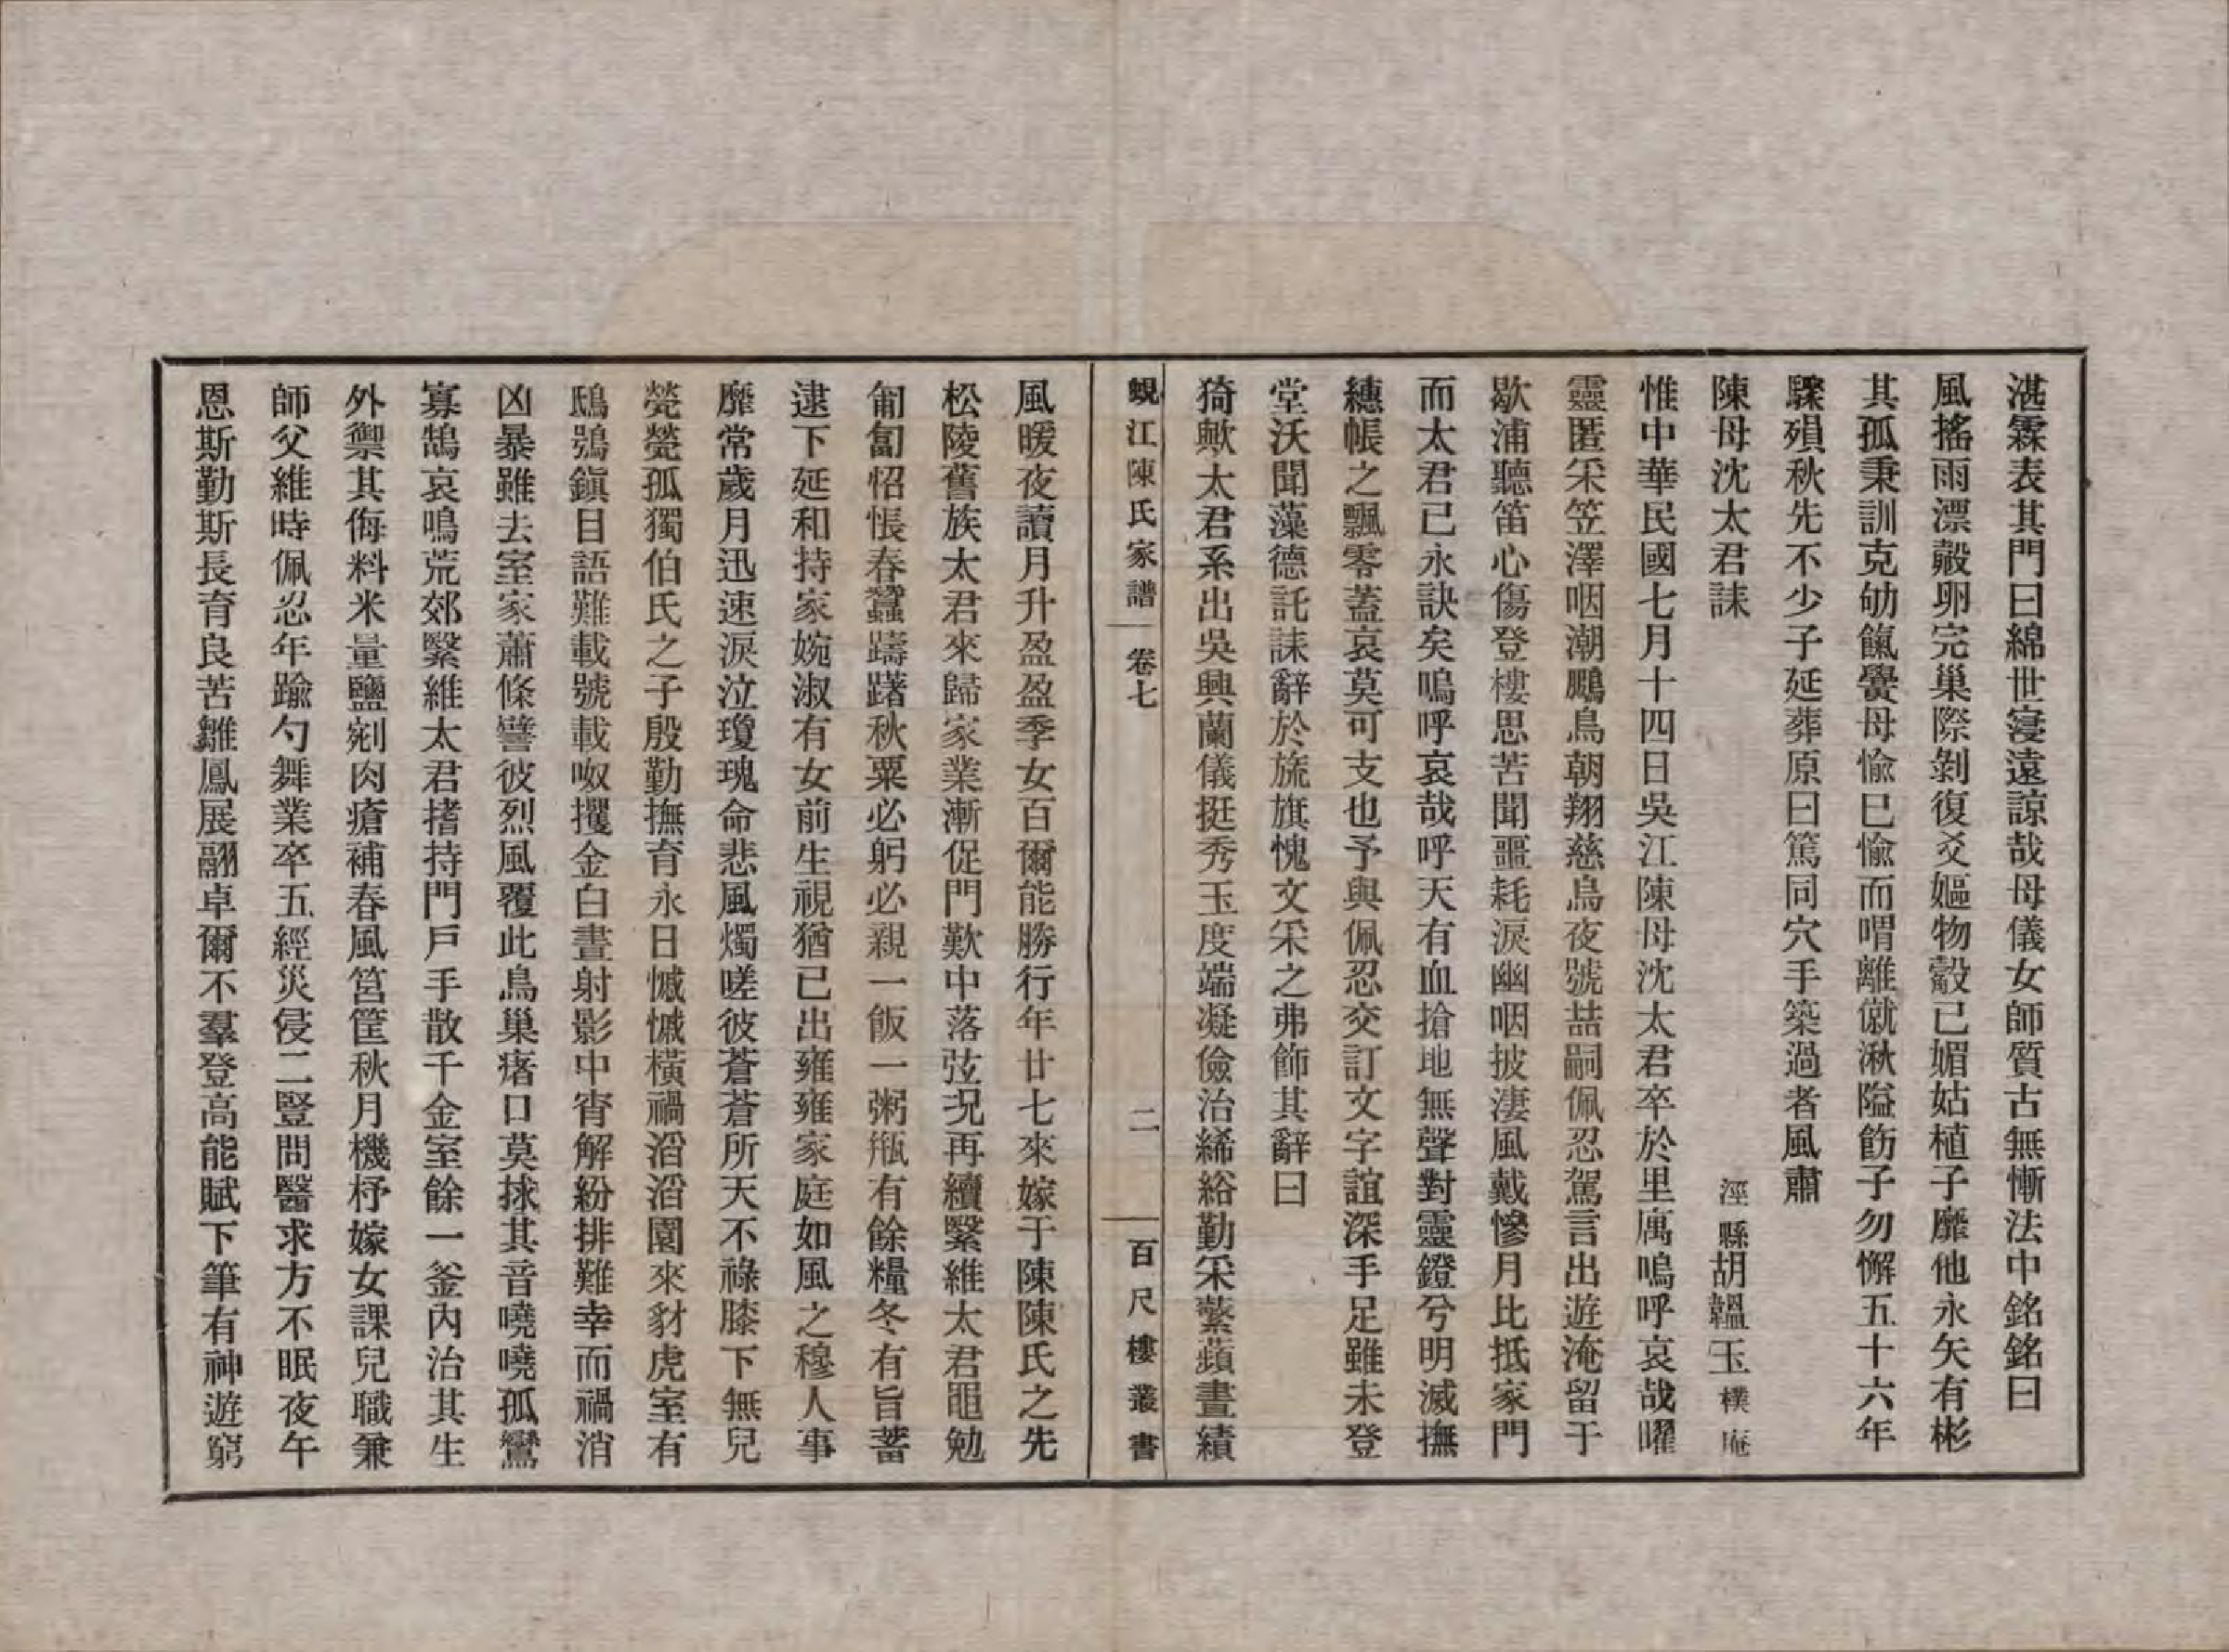 湛霖表其門曰綿世寖遠諒哉母儀女師質古無慚法中銘銘曰
風搖雨漂鷇卵完巢際剝復爻嫗物鷇已媚姑植子靡他永矢有彬
其孤秉訓克劬餼黌母愉已愉而喟離僦湫隘飭子勿懈五十六年
驟殞秋先不少子延葬原曰篤同穴手築過者風肅
陳母沈太君誄 涇縣胡韞玉樸庵
惟中華民國七月十四日吳江陳母沈太君卒於里寓嗚呼哀哉曜
靈匿采笠澤咽潮鵩鳥朝翔慈烏夜號喆嗣佩忍駕言出遊淹留于
歇浦聽笛心傷登樓思苦聞噩耗淚幽咽披淒風戴慘月比抵家門
而太君已永訣矣嗚呼哀哉呼天有血搶地無聲對靈鐙兮明滅撫
繐帳之飄零蓋哀莫可支也予與佩忍交訂文字誼深手足雖未登
堂沃聞藻德託誄辭於旒旗愧文采之弗飾其辭曰
猗歟太君系出吳興蘭儀挺秀玉度端凝儉治絺綌勤采蘩蘋晝績
蜆江陳氏家譜 卷七 二 百尺樓叢書
風暖夜讀月升盈盈季女百爾能勝行年廿七來嫁于陳陳氏之先
松陵舊族太君來歸家業漸促門歎中落弦況再續繄維太君黽勉
匍匐怊悵春蠶躊躇秋粟必躬必親一飯一粥缾有餘糧冬有旨蓄
逮下延和持家婉淑有女前生視猶已出雍雍家庭如風之穆人事
靡常歲月迅速淚泣瓊瑰命悲風燭嗟彼蒼蒼所天不祿膝下無兒
煢煢孤獨伯氏之子殷勤撫育永日慽慽橫禍滔滔園來豺虎室有
鴟鴞鎭日語難載號載呶攫金白晝射影中宵解紛排難幸而禍消
凶暴雖去室家蕭條譬彼烈風覆此鳥巢瘏口莫捄其音嘵嘵孤鸞
寡鵠哀鳴荒郊繄維太君搘持門戶手散千金室餘一釜內治其生
外禦其侮料米量鹽剜肉瘡補春風筥筐秋月機杼嫁女課兒職兼
師父維時佩忍年踰勺舞業卒五經災侵二豎問醫求方不眠夜午
恩斯勤斯長育良苦雛鳳展翮卓爾不羣登高能賦下筆有神遊窮